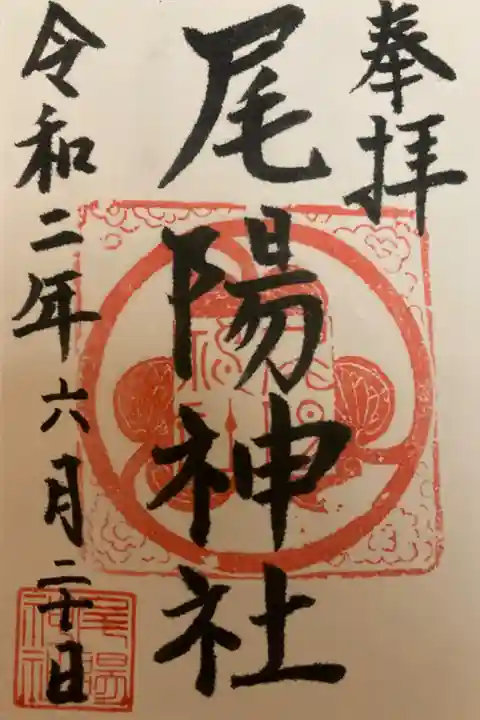 奉拝
尾陽神社
令和二年六月二十日
尾陽
神社